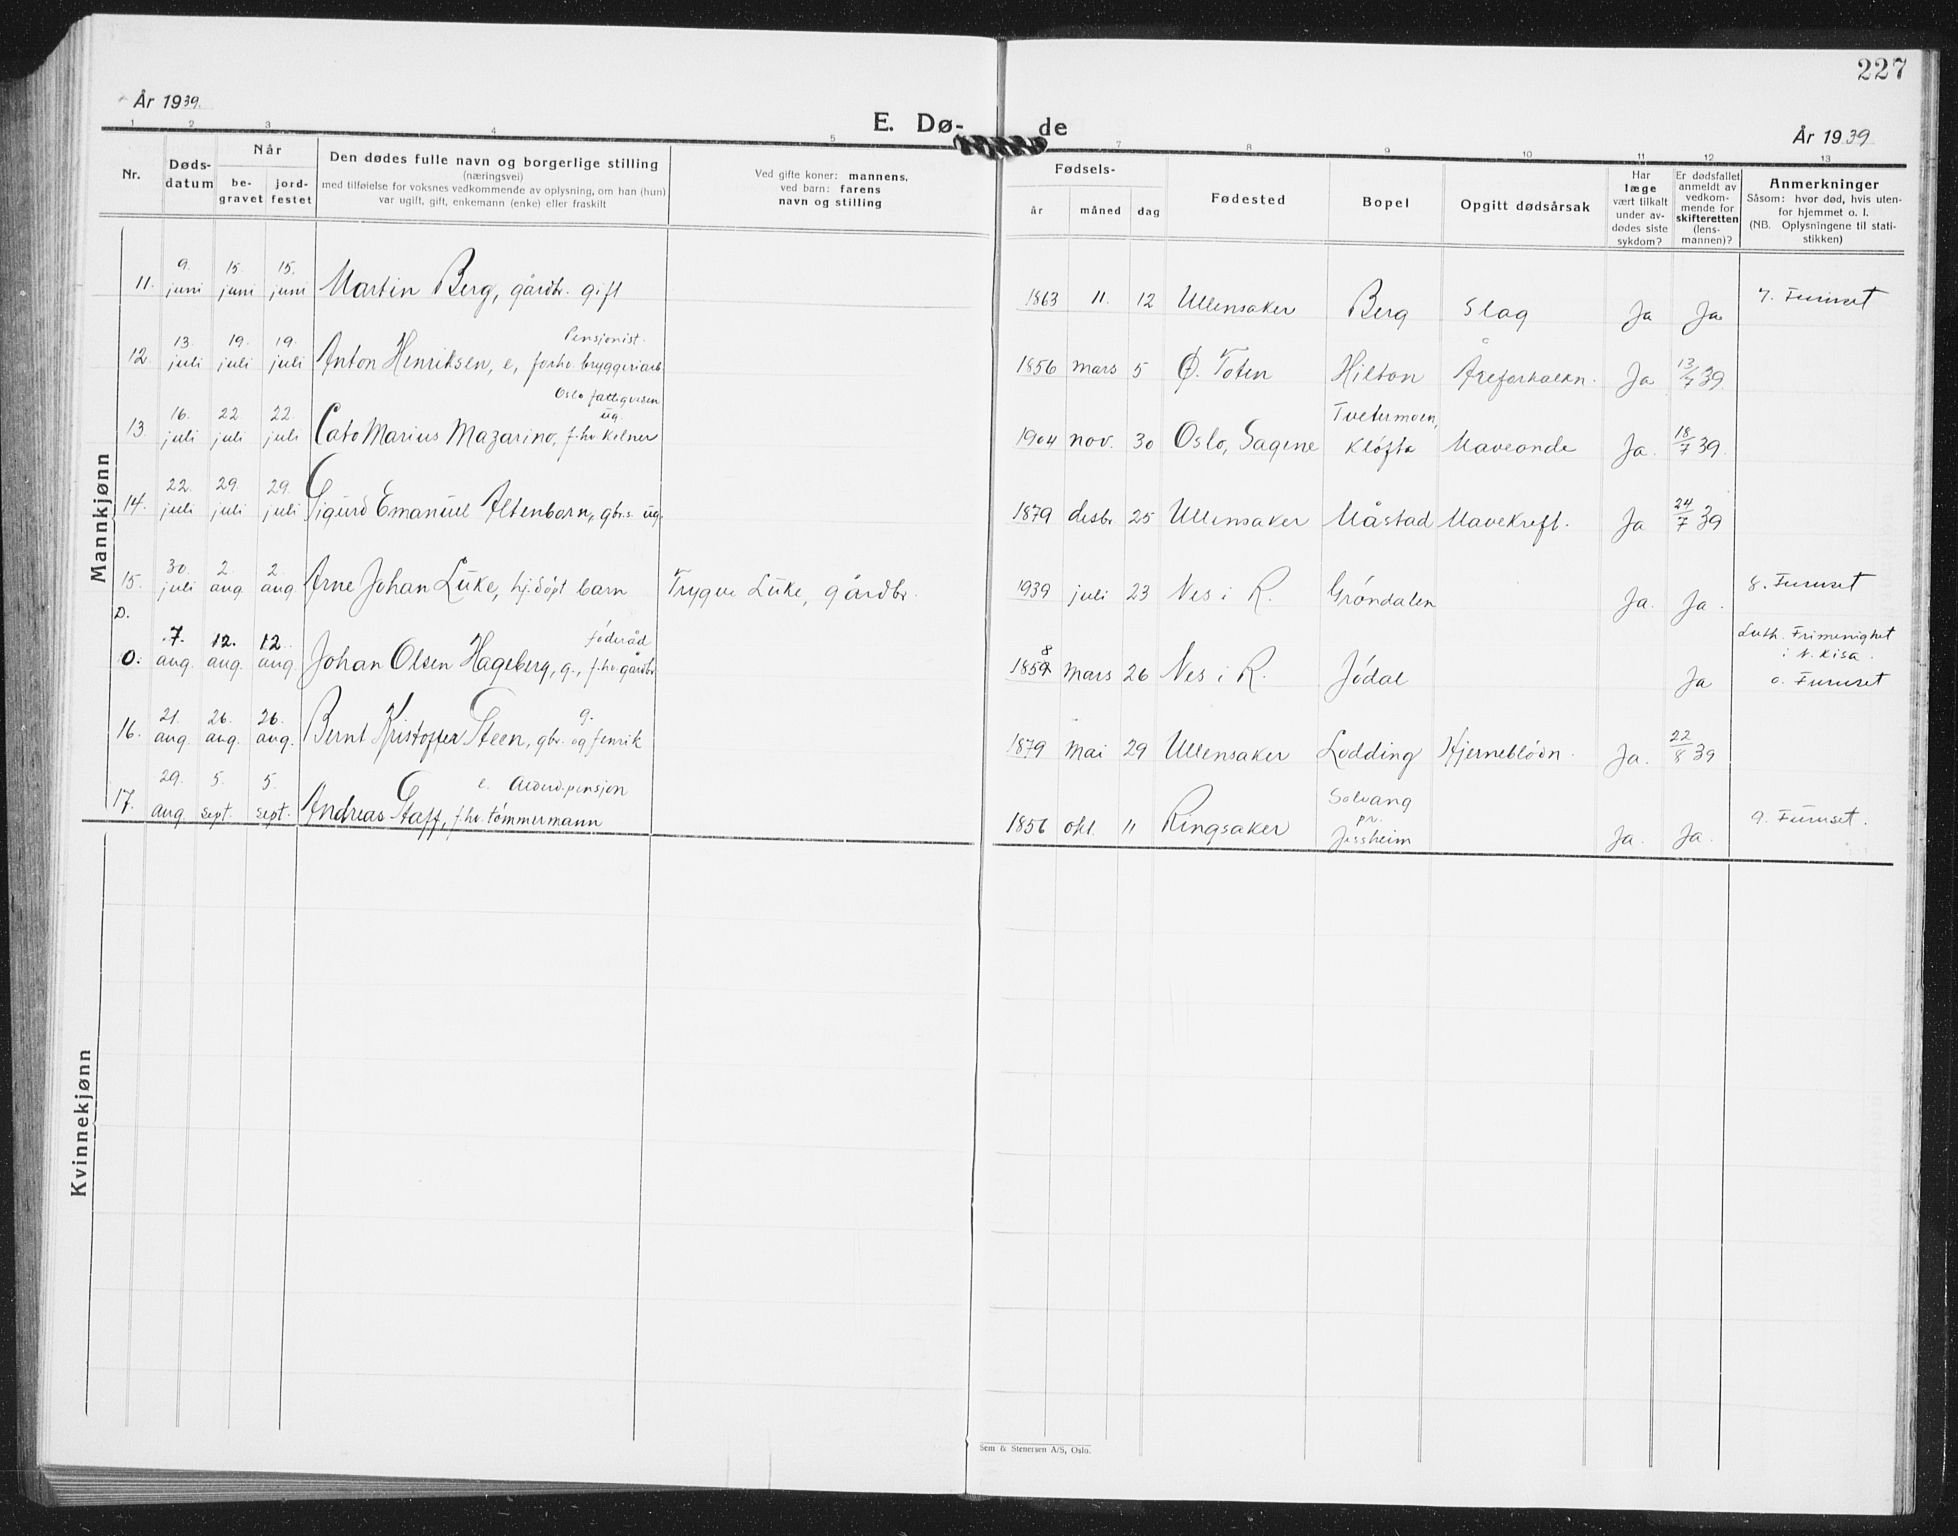 227
År 1939.
E. Dø- de
År 1939
1 2 3 4 5 7 8 9 10 11 12 13
Nr.
Døds-
datum
Når
be-
gravet
jord-
festet
Den dødes fulle navn og borgerlige stilling
(næringsvei)
med tilføielse for voksnes vedkommende av oplysning, om han (hun)
var ugift, gift, enkemann (enke) eller fraskilt
Ved gifte koner: mannens,
ved barn: farens
navn og stilling
Fødsels-
år måned dag
Fødested
Bopel
Opgitt dødsårsak
Har
læge
vært tilkalt
under av-
dødes siste
sykdom?
Er dødsfallet
anmeldt av
vedkom-
mende for
skifteretten
(lens-
mannen)?
Anmerkninger
Såsom: hvor død, hvis uten-
for hjemmet o. l.
(NB. Oplysningene til stati-
stikken)
Mannkjønn
9. 15. 15.
11. juni juni juni Martin Berg, gårdbr. gift 1863 11. 12 Ullensaker Berg Slag Ja Ja 7. Furuset
13. 19. 19. Pensjonist.
12. juli juli juli Anton Henriksen, e, forhv. bryggeriarb 1856 mars 5 Ø. Toten Hilton Åreforkalkn. Ja 13/7 39
Oslo fattigvesen
16. 22. 22. ug. Tvetermoen,
13. juli juli juli Cato Marius Mazarino, f.hv. kelner 1904 nov. 30 Oslo, Sagene Kløfta Maveonde Ja. 18/7 39.
22. 29. 29.
14. juli juli juli Sigurd Emanuel Altenborn, gbr.s. ug. 1879 desbr 25 Ullensaker Måstad Mavekreft. Ja 24/7 39
30. 2. 2.
15. juli aug aug Arne Johan Luke, hj.døpt barn Trygve Luke, gårdbr. 1939 juli 23 Nes i R. Grøndalen Ja. Ja. 8. Furuset
D.
7. 12. 12. føderåd 8 Luth. Frimenighet
i N. Kisa.
0. aug. aug. aug. Johan Olsen Hageberg, g., f.hv. gårdbr. 1859 mars 26 Nes i R. Jødal Ja o. Furuset
21. 26. 26. g.
16. aug. aug. aug. Bernt Kristoffer Steen, gbr. og fenrik 1879 mai 29 Ullensaker Lodding Hjerneblødn. Ja. 22/8 39
29. 5. 5. e. Alderd.pensjon Solvang
pr.
17. aug. sept. sept. Andreas Staff, f.hv. tømmermann 1856 okt. 11 Ringsaker Jessheim Ja. Ja. 9. Furuset.
Kvinnekjønn
Sem & Stenersen A/S, Oslo.